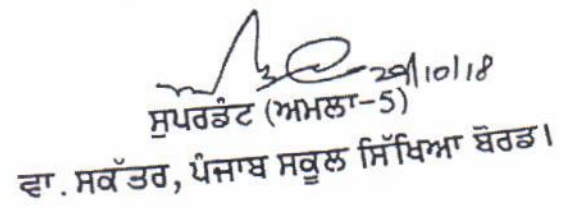 29/10/18
ਸੁਪਰਡੰਟ (ਅਮਲਾ-5)
ਵਾ. ਸਕੱਤਰ, ਪੰਜਾਬ ਸਕੂਲ ਸਿੱਖਿਆ ਬੋਰਡ।